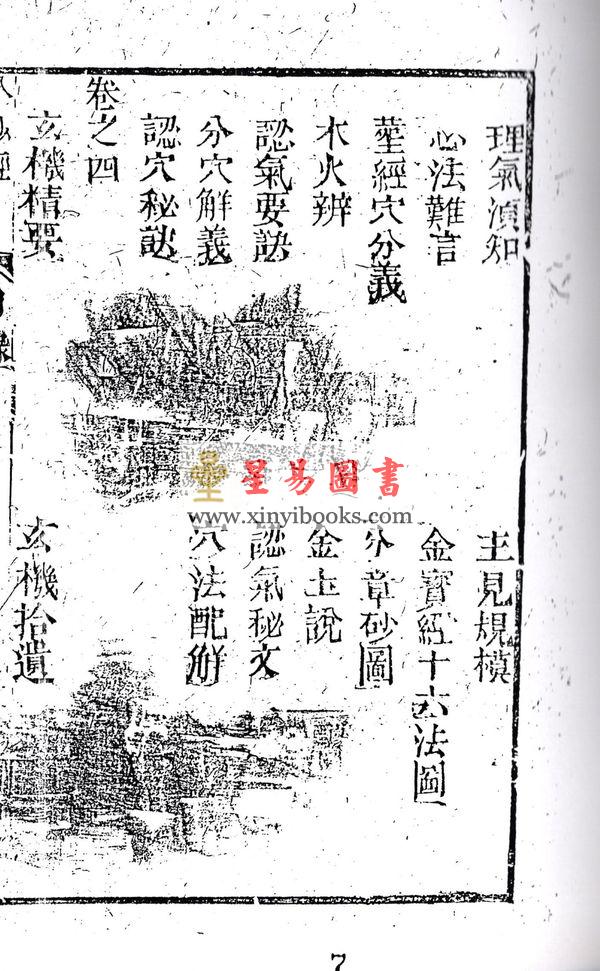 理氣湏知 主見規模
心法難言 金寶經十六法圖
葬經穴分義 分章砂圖
水火辨 金土說
認氣要訣 認氣秘文
分穴解義 穴法配解
認穴秘訣
卷之四
玄機精要 玄機拾遺
星易圖書
www.xinyibooks.com
7